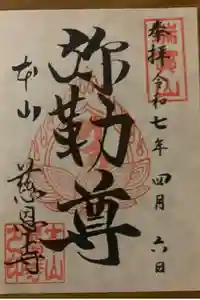 瑞寳山
奉拝 令和七年 四月 六日
弥勒尊
本山 慈恩寺